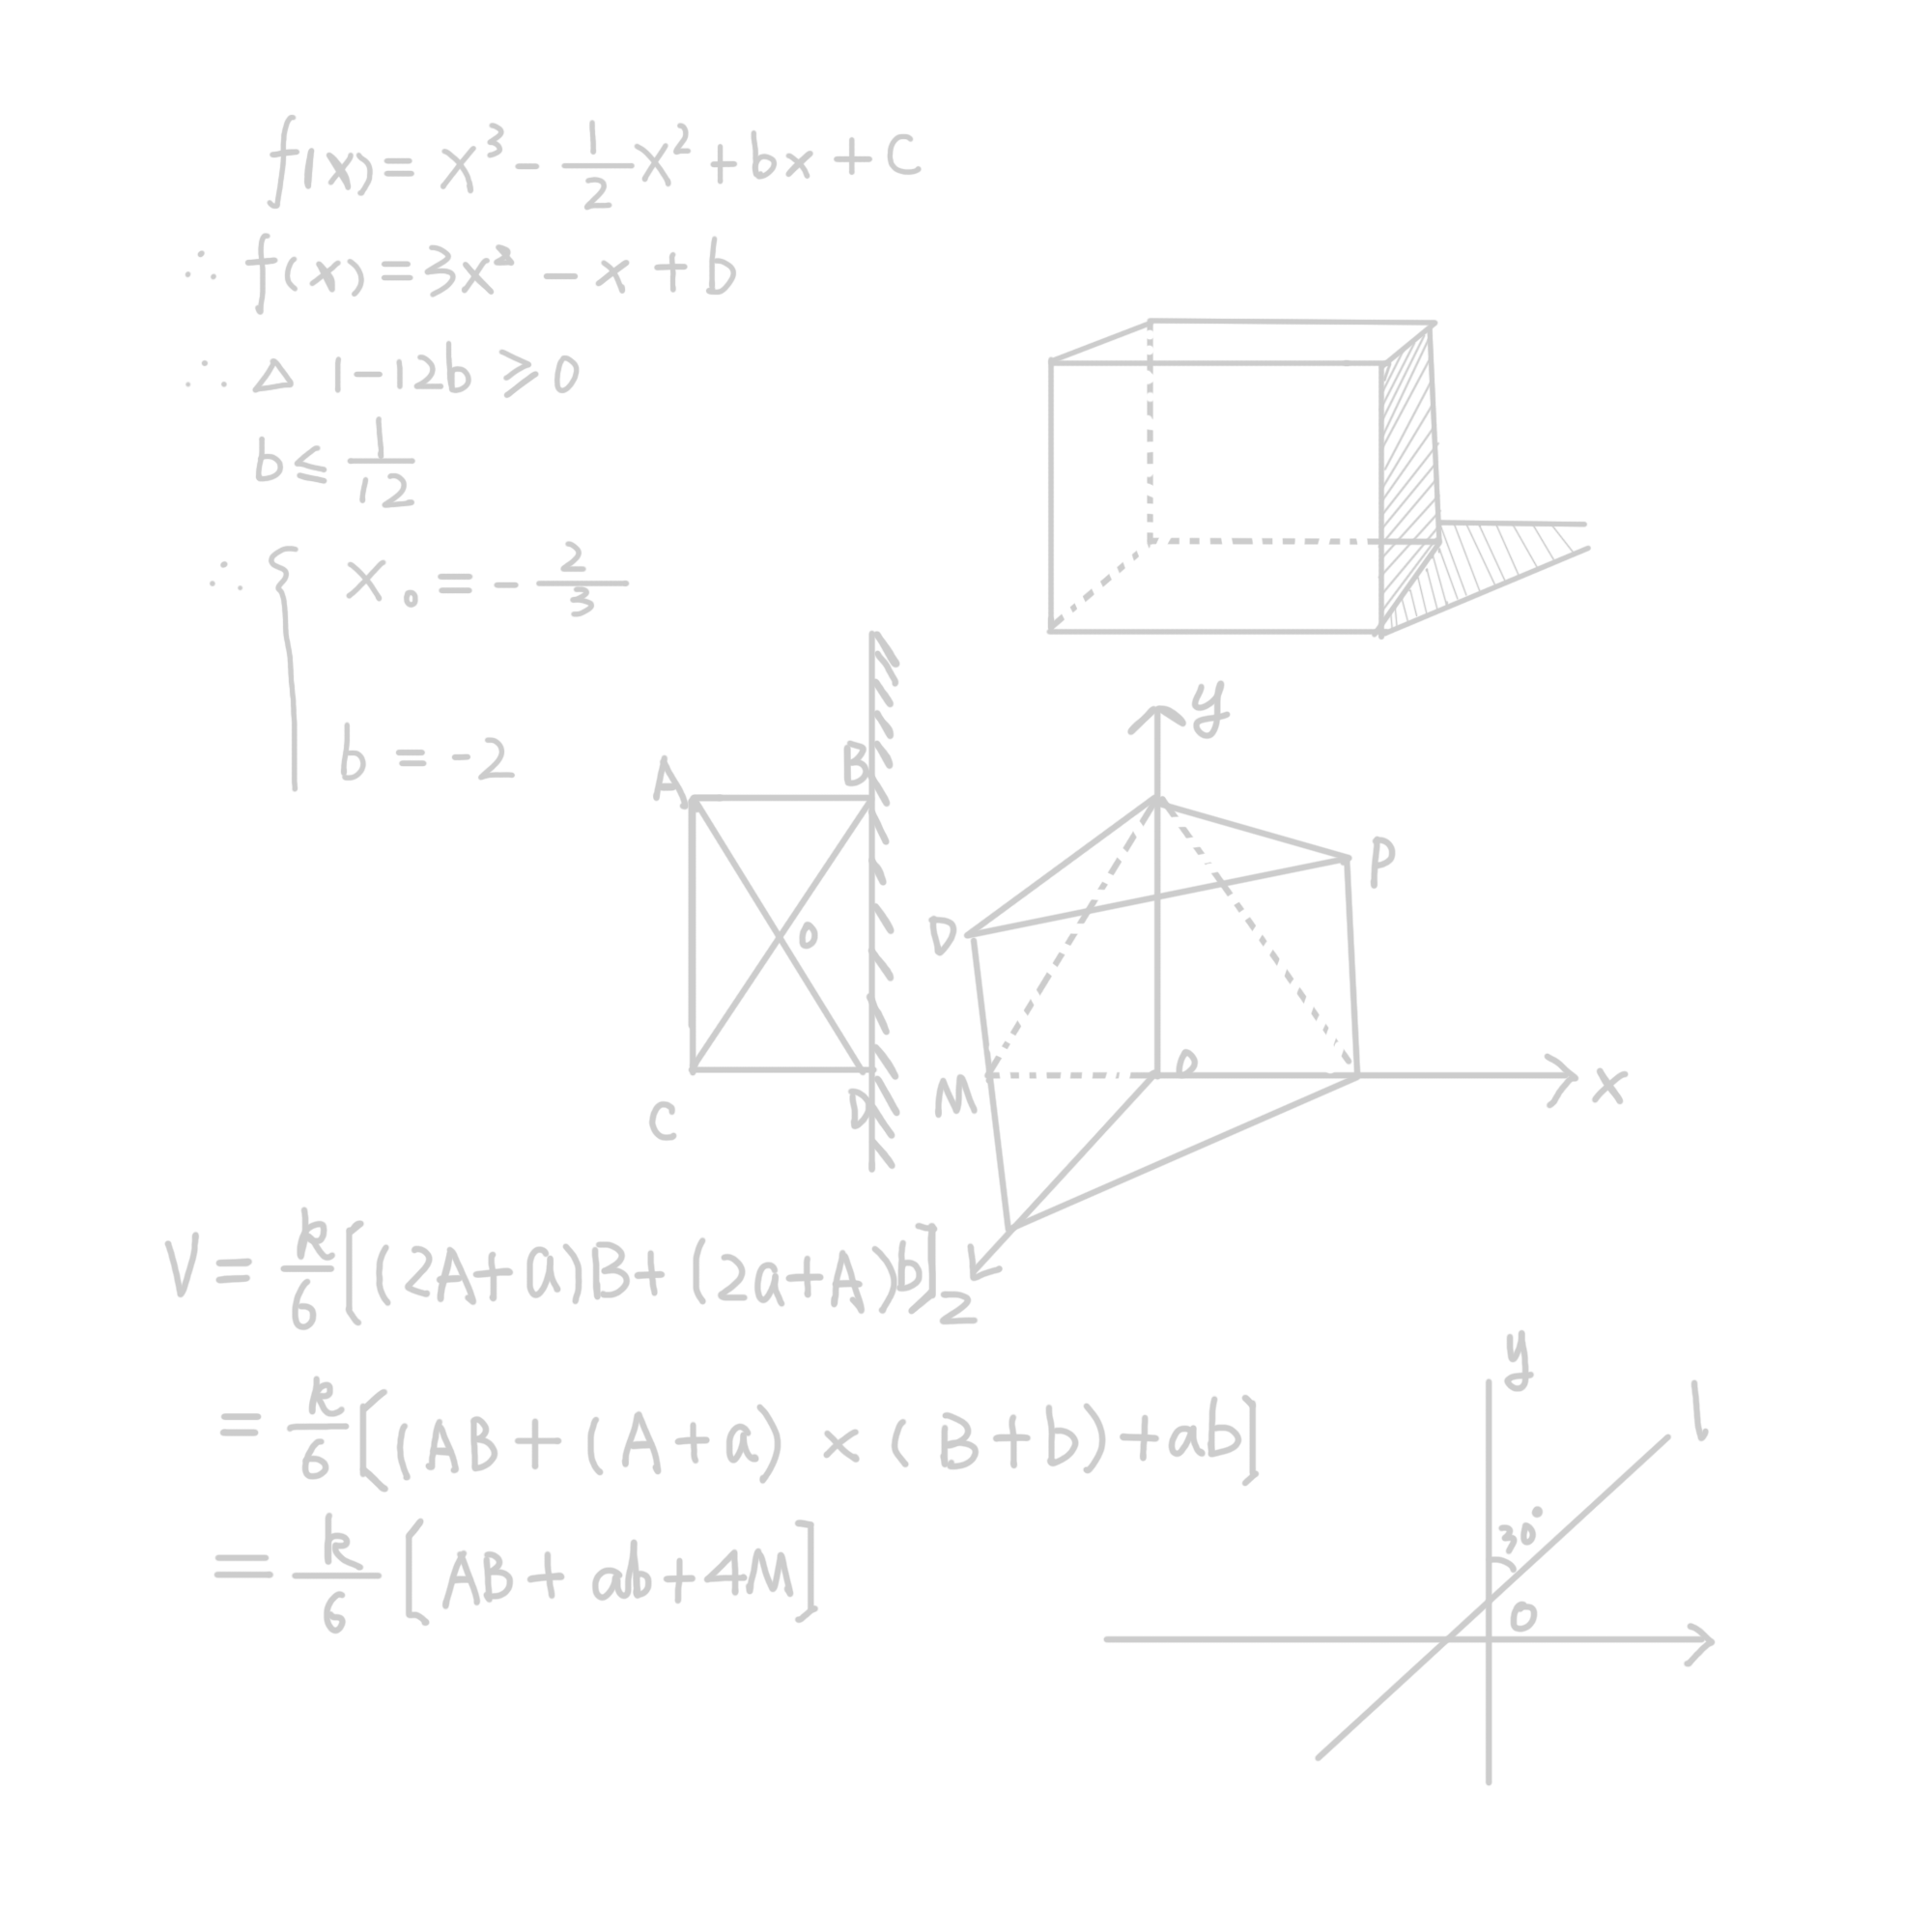 f(x) = x³ - 1/2 x² + bx + C
∴ f(x) = 3x² - x + b
∴ △ 1 - 12b ≥ 0
b ≤ 1/12
∴ { x₀ = - 2/3
b = -2
A B
O
C D
y
P
D
M O x
Z
V = h/6 [(2A+a)B + (2a+A)b]
= h/6 [(AB + (A+a) x (B+b) + ab]
= h/6 [AB + ab + 4M]
y
l
30°
O